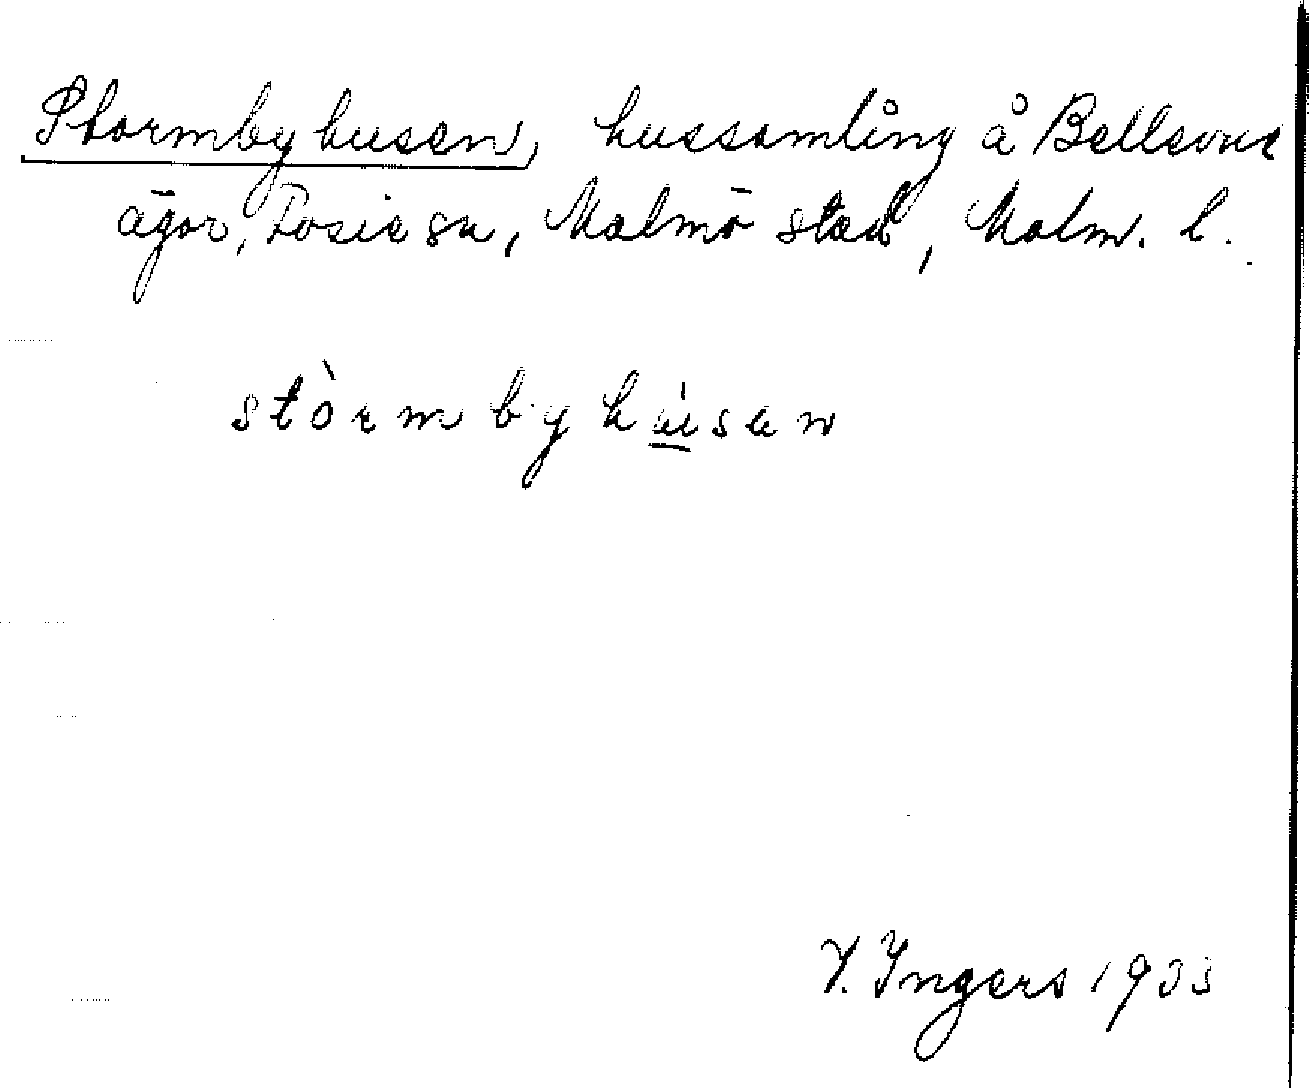 Stormbyhusen, hussamling å Bellevue
ägor, Fosie sn, Malmö stad, Malm. l.
stòrmbyhúsen
I. Ingers 1933